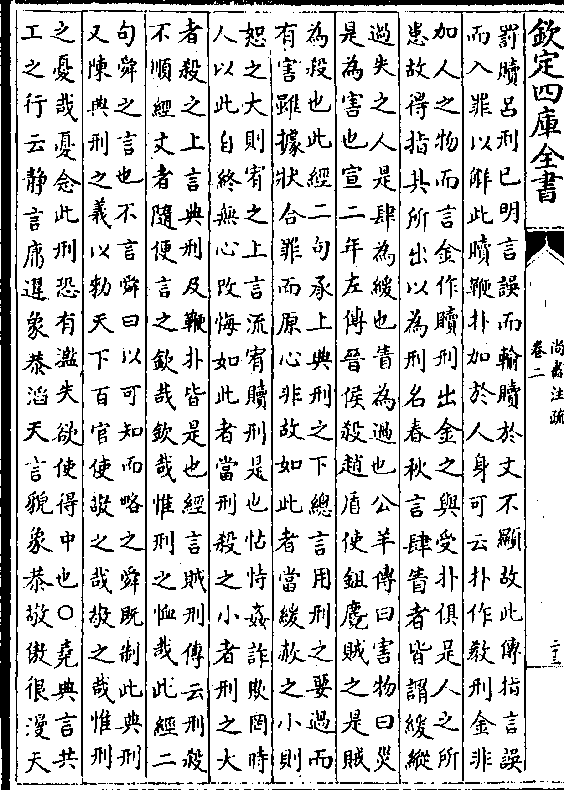 欽定四庫全書
尚書注疏
卷二
罰贖呂刑已明言誤而輸贖於文不顯故此傳指言誤
而入罪以解此贖鞭扑加於人身可云扑作教刑金非
加人之物而言金作贖刑出金之與受扑俱是人之所
患故得指其所出以為刑名春秋言肆眚者皆謂緩縱
過失之人是肆為緩也眚為過也公羊傳曰害物曰災
是為害也宣二年左傳晉侯殺趙盾使鉏麑賊之是賊
為殺也此經二句承上典刑之下總言用刑之要過而
有害雖據狀合罪而原心非故如此者當緩赦之小則
恕之大則宥之上言流宥贖刑是也怙恃姦詐欺罔時
人以此自終無心改悔如此者當刑殺之小者刑之大
者殺之上言典刑及鞭扑皆是也經言賊刑傳云刑殺
不順經文者隨便言之欽哉欽哉惟刑之恤哉此經二
句舜之言也不言舜曰以可知而略之舜既制此典刑
又陳典刑之義以勑天下百官使敬之哉敬之哉惟刑
之憂哉憂念此刑恐有濫失欲使得中也○堯典言共
工之行云静言庸違象恭滔天言貌象恭敬傲很漫天